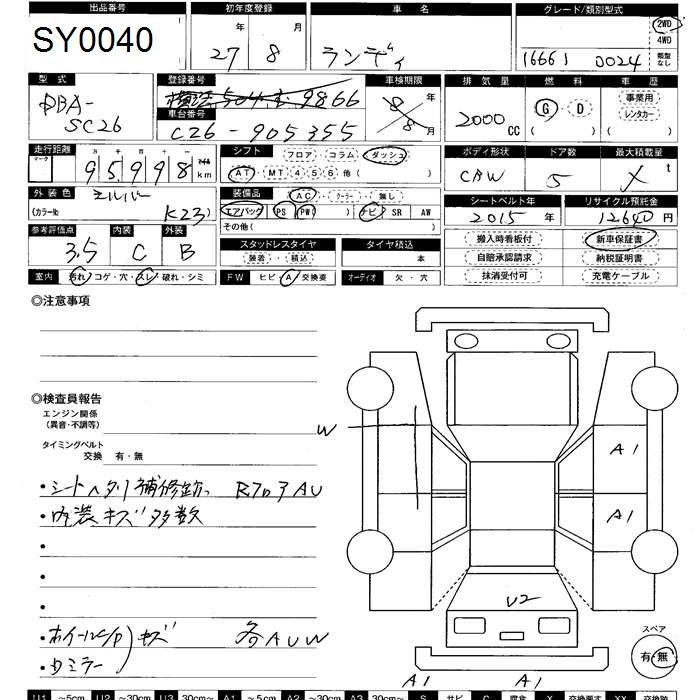 出品番号 初年度登録 車名 グレード/類別型式
SY0040 27年 8月 ランディ 16661 0024 2WD 4WD 類型なし
型式 登録番号 車検期限 排気量 燃料 車歴
DBA-SC26 横浜504 9866 8年8月 2000cc G・D ( ) 事業用 レンタカー ( )
車台番号
C26-905355
走行距離 シフト フロア・コラム・ダッシュ ボディ形状 ドア数 最大積載量
マーク 95998 マイル km AT・MT 4・5・6 他( ) CAW 5 X t
外装色 シルバー 装備品 AC・クーラー・無し シートベルト年 リサイクル預託金
(カラーNo K23) エアバッグ PS PW( ) ナビ SR AW 2015年 12640円
その他( )
参考評価点 内装 外装 搬入時看板付 新車保証書
3.5 C B スタッドレスタイヤ タイヤ積込 自賠承認請求 納税証明書
装着・積込 本 抹消受付可 充電ケーブル
室内 汚れ・コゲ・穴・スレ・破れ・シミ FW ヒビ・A・交換要 オーディオ 欠・穴
◎注意事項
◎検査員報告
エンジン関係
(異音・不調等)
W
タイミングベルト
交換 有・無
A1
・シートヘタリ補修跡 RフロアAU
A1
・内装キズ多数
U2
・ホイールC/P キズ 各AUW
・ミラー
スペア
有・無
A1 A1
U1 ～5cm U2 ～30cm U3 30cm～ A1 ～5cm A2 ～30cm A3 30cm～ S サビ C 腐食 X 交換要す XX 交換跡